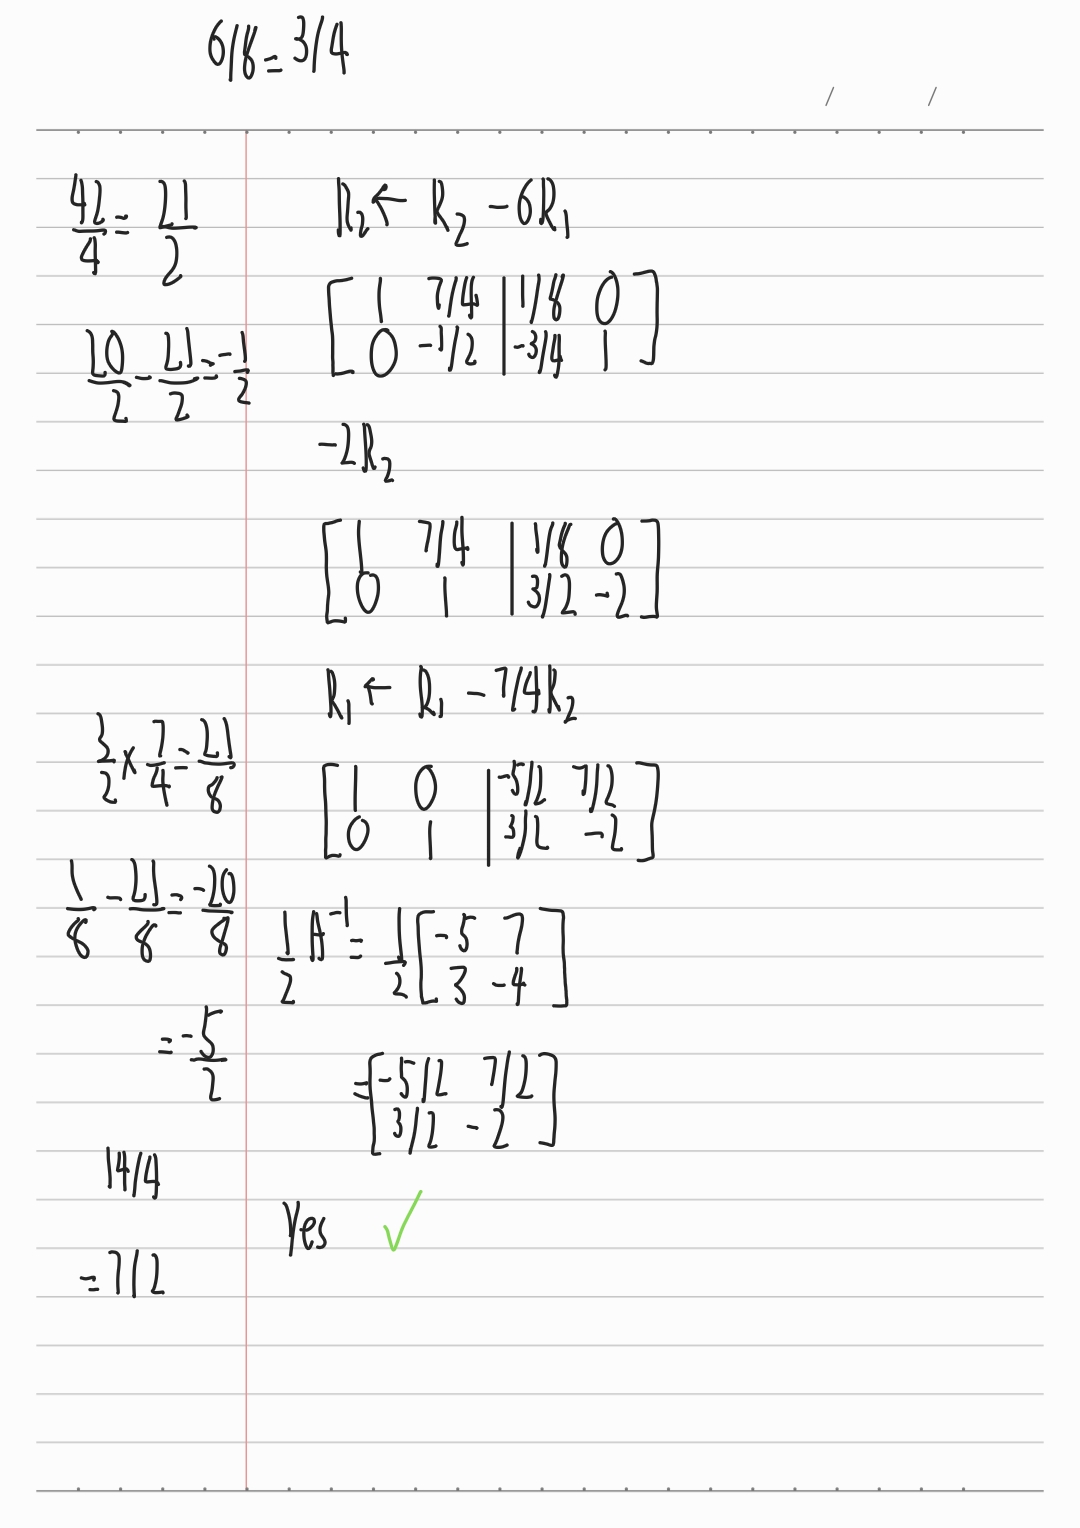 6/8 = 3/4
42/4 = 21/2
R₂ ← R₂ - 6R₁
[ 1 7/4 | 1/8 0 ]
[ 0 -1/2 | -3/4 1 ]
20/2 - 21/2 = -1/2
-2R₂
[ 1 7/4 | 1/8 0 ]
[ 0 1 | 3/2 -2 ]
R₁ ← R₁ - 7/4R₂
3/2 × 7/4 = 21/8
[ 1 0 | -5/2 7/2 ]
[ 0 1 | 3/2 -2 ]
1/8 - 21/8 = -20/8
= -5/2
1/2 A⁻¹ = 1/2 [ -5 7 ]
[ 3 -4 ]
= [ -5/2 7/2 ]
[ 3/2 -2 ]
14/4
= 7/2
Yes ✓